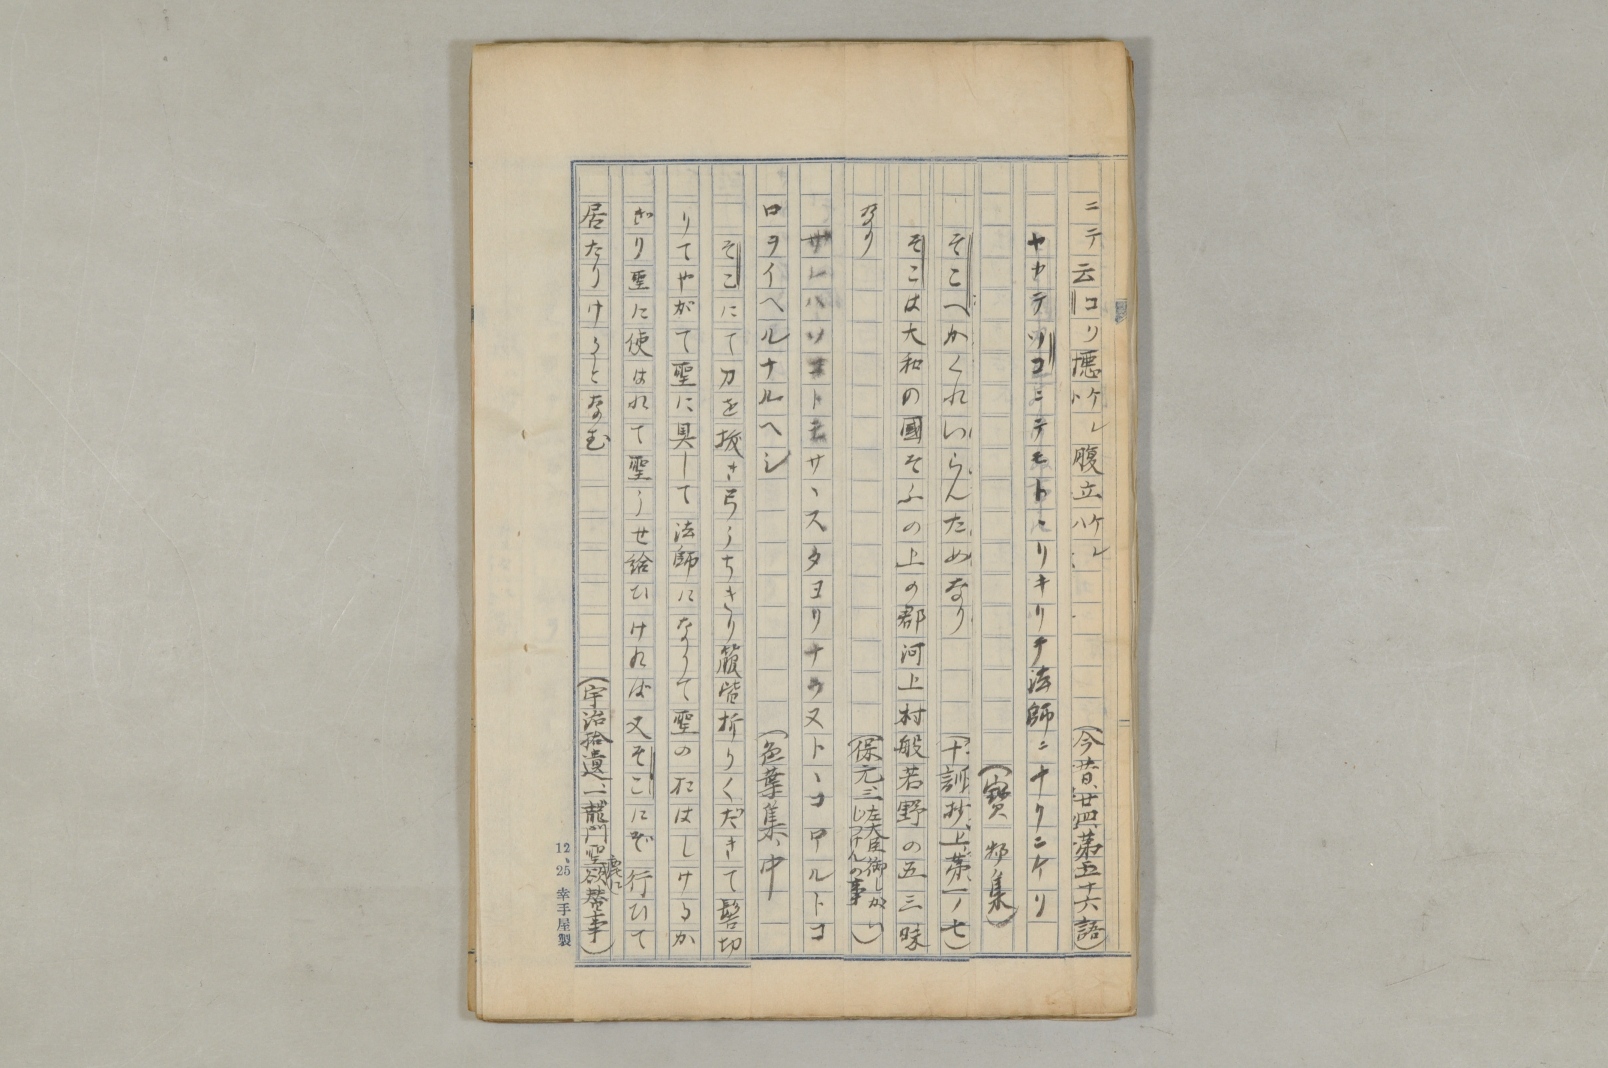 ニテ云コリ憾ケレハ腹立ケレハ(今昔、廿四第五十六語)
ヤカテソコニテモトヽリキリテ法師ニナリニケリ
(寶物集)
そこへかくれいらんためなり(十訓抄、上、第一ノ七)
そこは大和の國そふの上の郡河上村般若野の五三昧
なり(保元三、左大臣御しがいじつけんの事)
サレハソコトモサヽスタヨリナラヌトヽコロルトコ
ロヲイヘルナルヘシ(色葉集、中)
そこにて刀を拔き弓うちきり箙皆折りくだきて髻切
りてやがて聖に具して法師になりて聖のおはしけるか
ぎり聖に使はれて聖うせ給ひければ又そこにぞ行ひて
居たりけるとなむ(宇治拾遺一、龍門聖鹿に欲替事)
12、25 幸手屋製